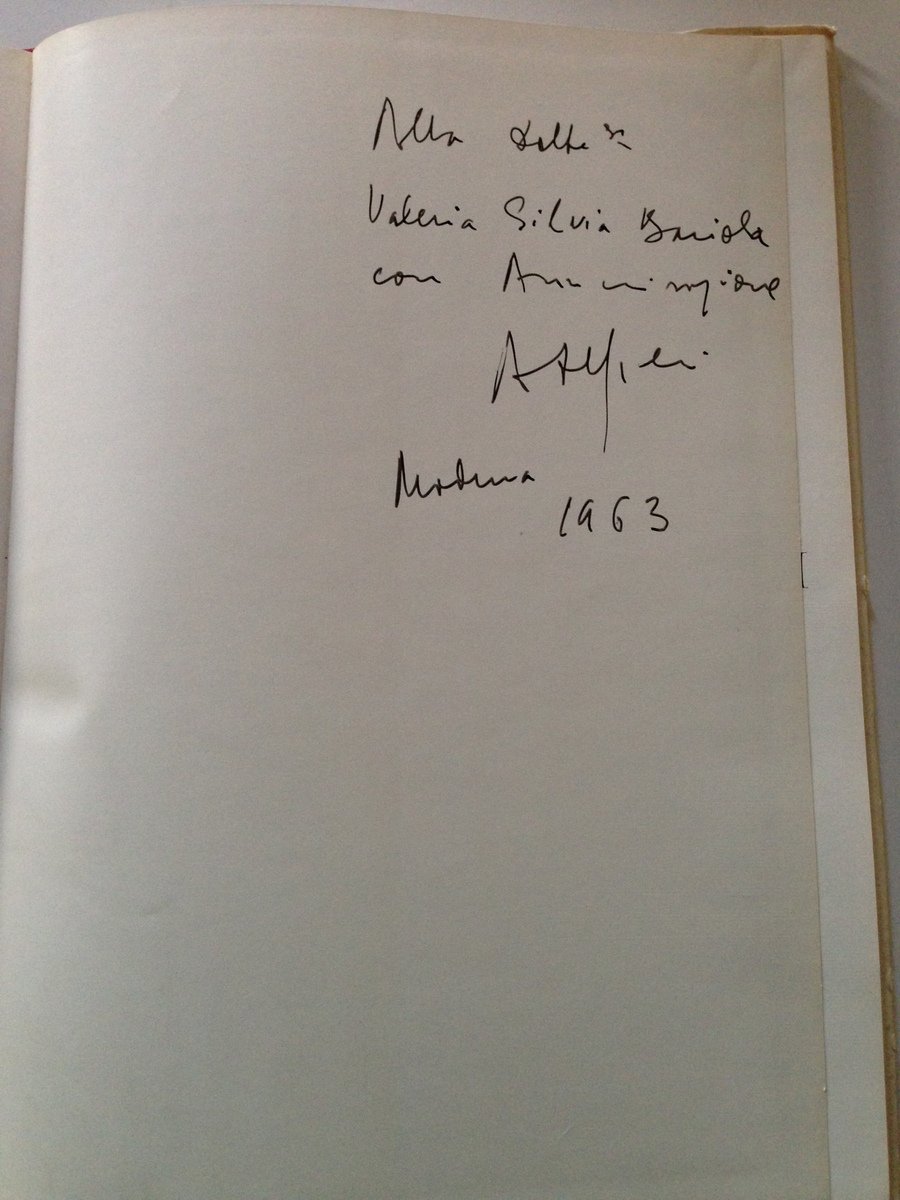 Alla Dott.ssa
Valeria Silvia Bariola
con Ammirazione
AAlfieri
Modena
1963